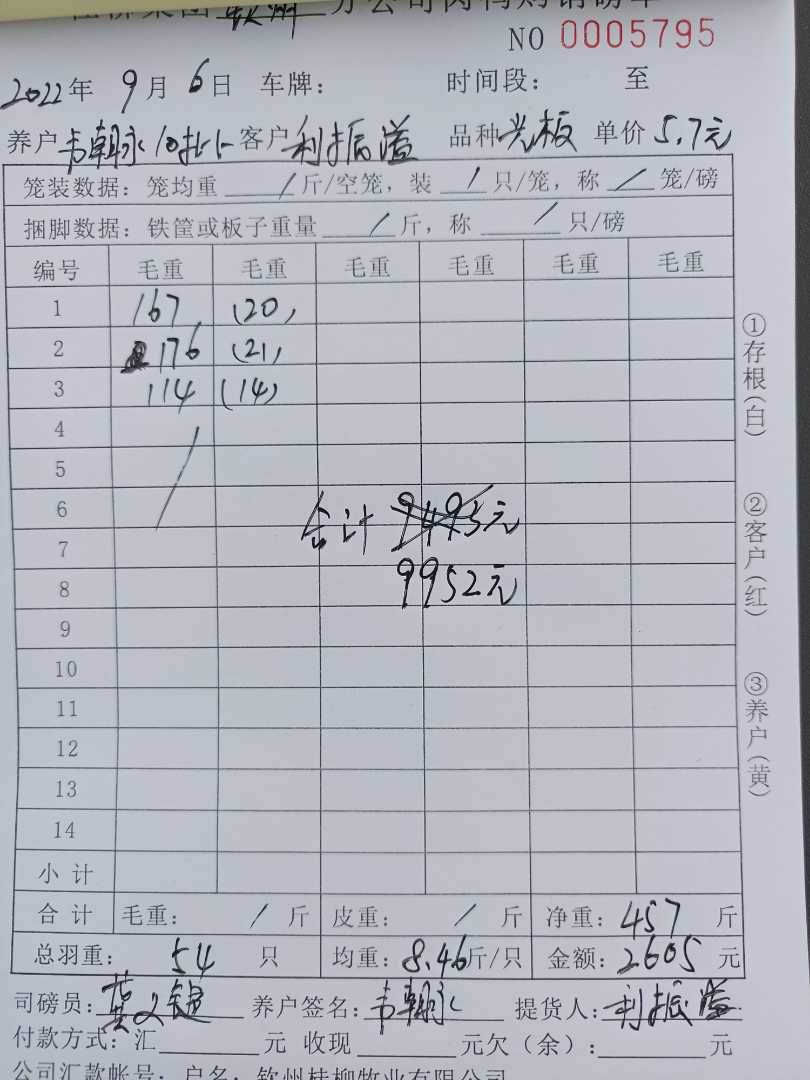 桂柳集团钦州分公司肉鸭购销磅单
NO 0005795
2022年 9月 6日 车牌： 时间段： 至
养户 韦朝永 10批 客户 利振溢 品种 光板 单价 5.7元
笼装数据：笼均重 / 斤/空笼，装 / 只/笼，称 / 笼/磅
捆脚数据：铁筐或板子重量 / 斤，称 / 只/磅
编号 毛重 毛重 毛重 毛重 毛重 毛重
1 167 (20)
2 176 (21)
3 114 (14)
4
5
6 合计 9495元
7
8 9952元
9
10
11
12
13
14
小计
合计 毛重： / 斤 皮重： / 斤 净重：457 斤
总羽重： 54 只 均重：8.46斤/只 金额：2605元
司磅员： 养户签名：韦朝永 提货人：利振溢
付款方式：汇 元 收现 元欠（余）： 元
公司汇款帐号：户名：钦州桂柳牧业有限公司
①存根（白） ②客户（红） ③养户（黄）